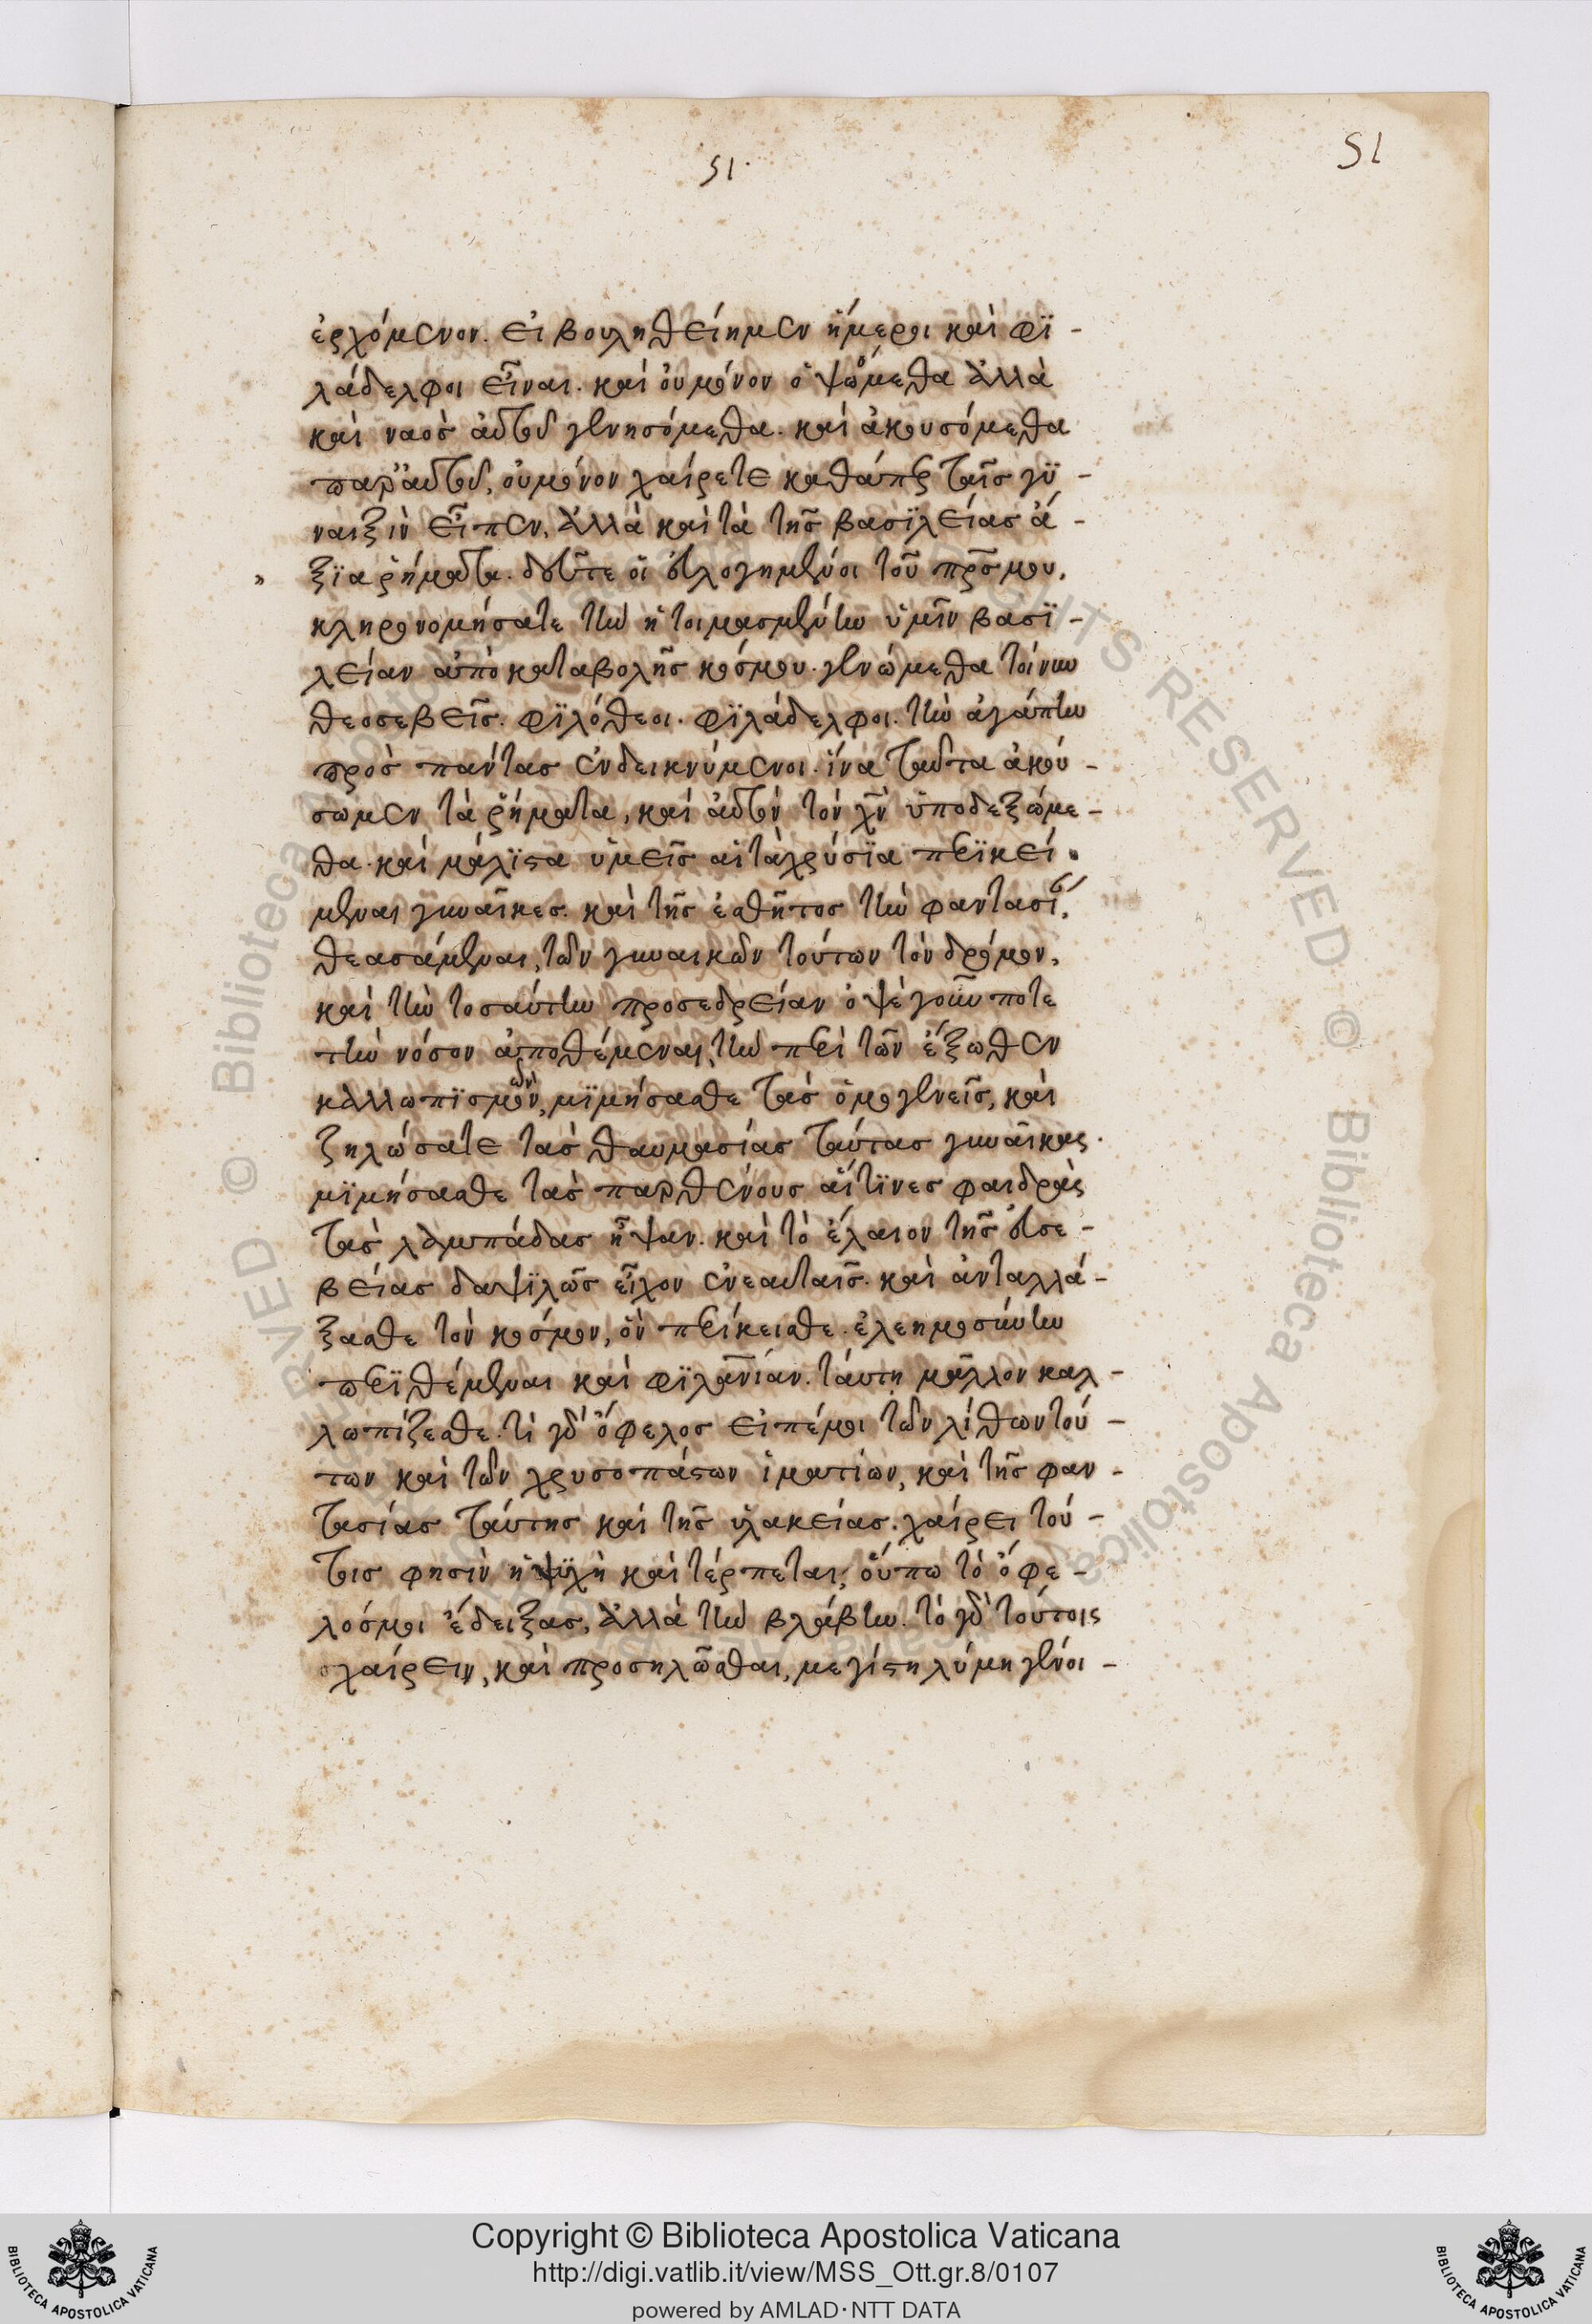 51.
51
ἐρχόμενον. εἰ βουληθείημεν ἥμεροι καὶ φϊ-
λάδελφοι εἶναι. καὶ οὐ μόνον ὀψώμεθα ἀλλὰ
καὶ ναὸς αὐτοῦ γενησόμεθα. καὶ ἀκουσόμεθα
παρ' αὐτοῦ, οὐ μόνον χαίρετε καθάπερ ταῖς γϋ-
ναιξὶν εἶπεν, ἀλλὰ καὶ τὰ τῆς βασϊλείας ἄ-
» ξϊα ῥήματα. δεῦτε οἱ εὐλογημένοι τοῦ πρς μου,
κληρονομήσατε τὴν ἡτοιμασμένην ὑμῖν βασϊ-
λείαν ἀπὸ καταβολῆς κόσμου. γενώμεθα τοίνυν
θεοσεβεῖς. φϊλόθεοι. φϊλάδελφοι. τὴν ἀγάπην
πρὸς πάντας ἐνδεικνύμενοι. ἵνα ταῦτα ἀκού-
σωμεν τὰ ῥήματα, καὶ αὐτὸν τὸν χν ὑποδεξώμε-
θα. καὶ μάλϊστα ὑμεῖς αἱ τὰ χρύσϊα περϊκεί-
μεναι γυναῖκες. καὶ τῆς ἐσθῆτος τὴν φαντασί,
θεασάμεναι, τῶν γυναικῶν τούτων τὸν δρόμον,
καὶ τὴν τοσαύτην προσεδρείαν ὀψὲ γοῦν ποτε
τὴν νόσον ἀποθέμεναι, τὴν περὶ τῶν ἔξωθεν
καλλωπϊσμῶν, μϊμήσασθε τὰς ὁμογενεῖς, καὶ
ζηλώσατε τὰς θαυμασίας ταύτας γυναῖκας.
μϊμήσασθε τὰς παρθένους αἵτϊνες φαιδρὰς
τὰς λαμπάδας ἧψαν. καὶ τὸ ἔλαιον τῆς εὐσε-
βείας δαψϊλῶς εἶχον ἐν ἑαυταῖς. καὶ ἀνταλλά-
ξασθε τὸν κόσμον, ὃν περίκεισθε. ἐλεημοσύνην
περϊθέμεναι καὶ φϊλανίαν. ταύτη μᾶλλον καλ-
λωπίζεσθε. τί γὰρ ὄφελος εἰπέ μοι τῶν λίθων τού-
των καὶ τῶν χρυσοπάστων ἱματίων, καὶ τῆς φαν-
τασίας ταύτης καὶ τῆς βλακείας. χαίρει τού-
τοις φησὶν ἡ ψϋχὴ καὶ τέρπεται; οὔπω τὸ ὄφε-
λός μοι ἔδειξας, ἀλλὰ τὴν βλάβην. τὸ γὰρ τούτοις
χαίρειν, καὶ προσηλῶσθαι, μεγίστη λύμη γένοι-
Copyright © Biblioteca Apostolica Vaticana
http://digi.vatlib.it/view/MSS_Ott.gr.8/0107
powered by AMLAD·NTT DATA